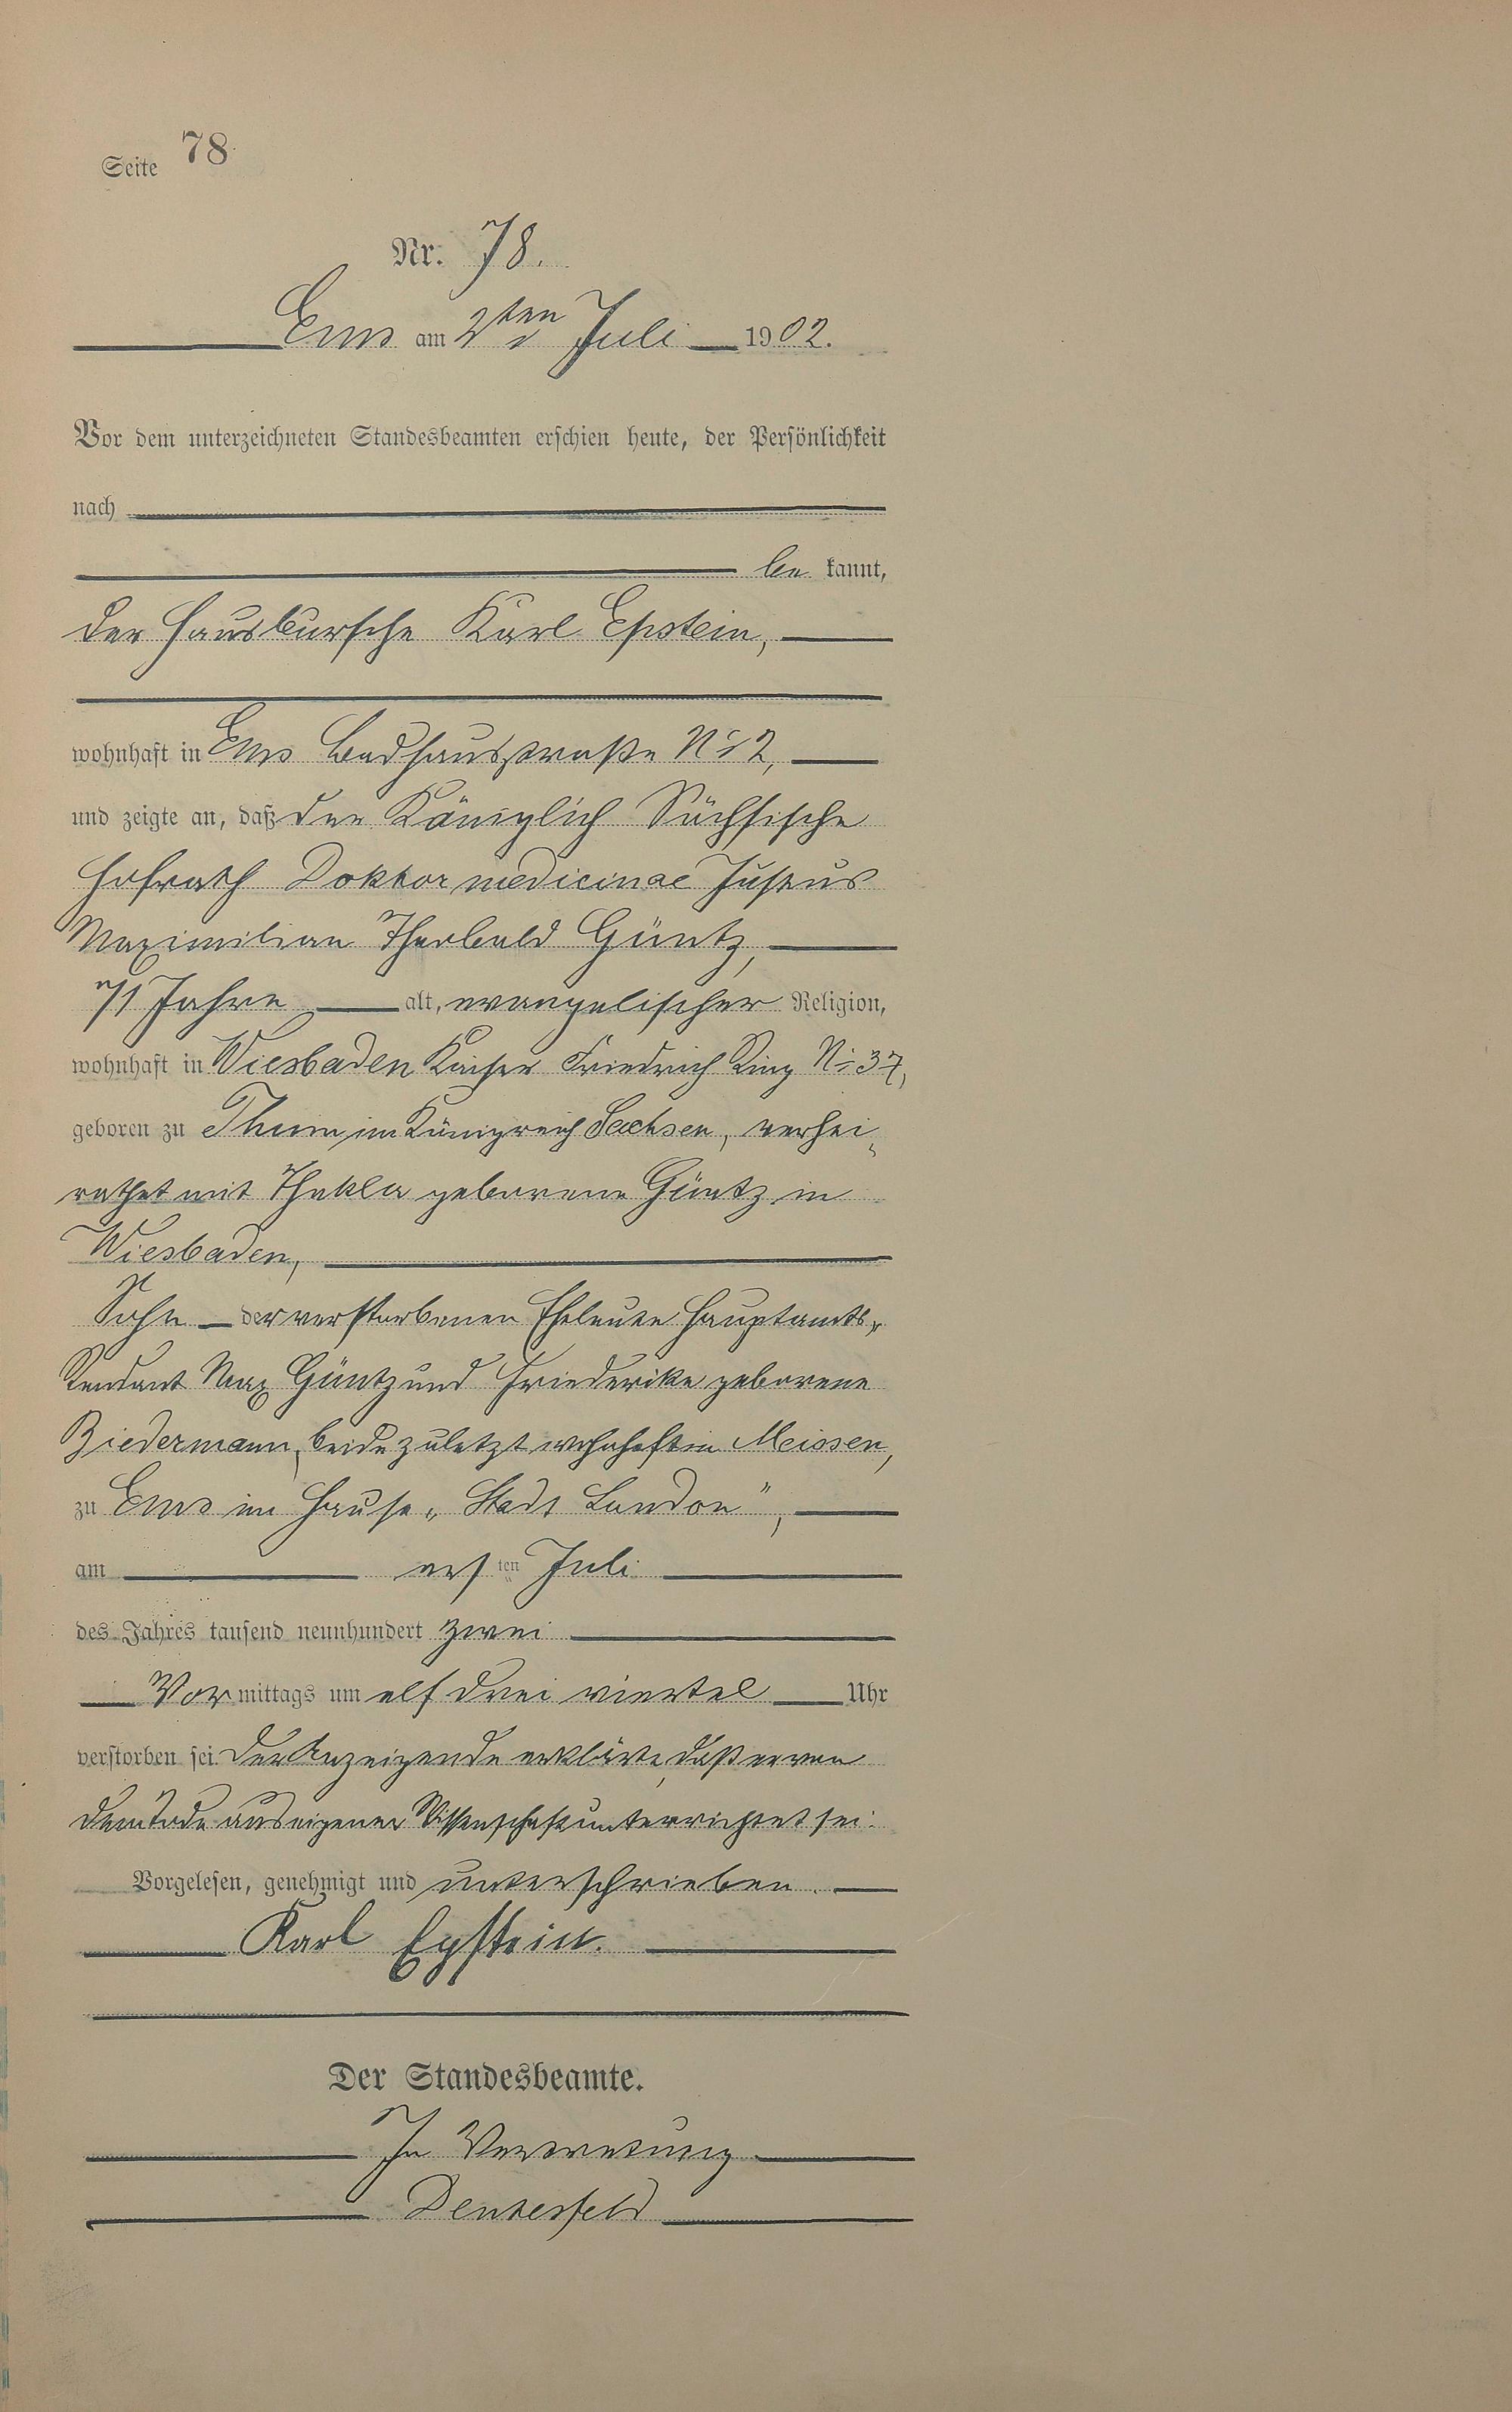 Seite 78
Nr. 78.
Ems am 2ten Juli 1902.
Vor dem unterzeichneten Standesbeamten erschien heute, der Persönlichkeit
nach
be kannt,
der Hausbursche Karl Epstein,
wohnhaft in Ems Badhausstraße No 2,
und zeigte an, daß der Königlich Sächsische
Hofrath Doktor medicinae Justus
Maximilian Theobald Güntz,
71 Jahre alt, evangelischer Religion,
wohnhaft in Wiesbaden Kaiser Friedrich Ring No 37,
geboren zu Thum im Königreich Sachsen, verhei„
rathet mit Thekla geborene Güntz in
Wiesbaden,
Sohn der verstorbenen Eheleute Hauptamts„
Rendant Max Güntz und Friederike geborene
Biedermann, beide zuletzt wohnhaft in Meissen,
zu Ems im Hause „Stadt London",
am ersten Juli
des Jahres tausend neunhundert zwei
Vor mittags um elf drei viertel Uhr
verstorben sei. Der Anzeigende erklärte, daß er von
dem Tode aus eigener Wissenschaft unterrichtet sei.
Vorgelesen, genehmigt und unterschrieben.
Karl Epstein.
Der Standesbeamte.
In Vertretung